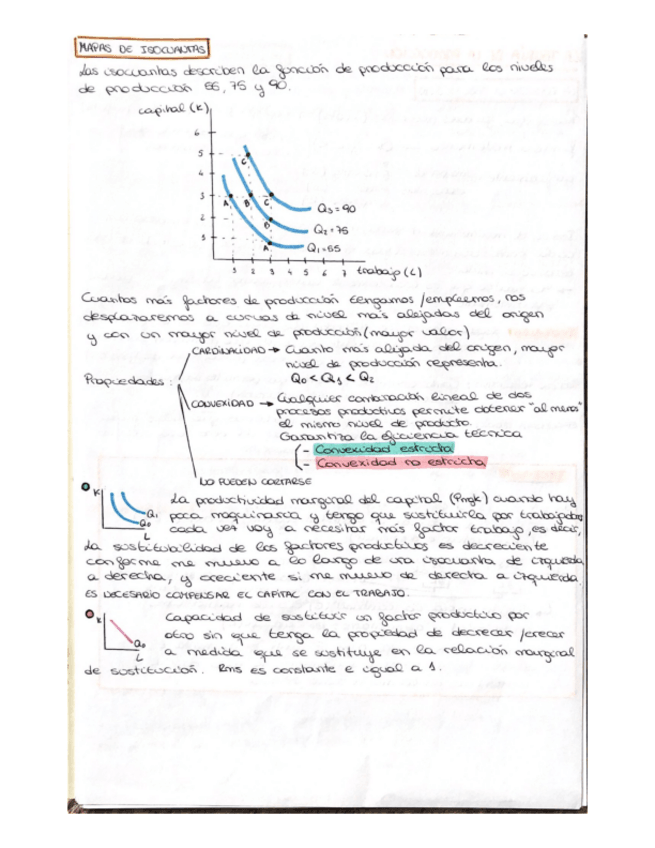 MAPAS DE ISOCUANTAS
Las isocuantas describen la función de producción para los niveles
de producción 55, 75 y 90.
capital (K)
6
5
4
3
2
1
C
A
B
C
B
A
Q3 = 90
Q2 = 75
Q1 = 55
1 2 3 4 5 6 7 trabajo (L)
Cuantos más factores de producción tengamos/empleemos, nos
desplazaremos a curvas de nivel más alejadas del origen
y con un mayor nivel de producción (mayor valor)
CARDINALIDAD → Cuanto más alejada del origen, mayor
nivel de producción representa.
Q0 < Q1 < Q2
Propiedades:
CONVEXIDAD → Cualquier combinación lineal de dos
procesos productivos permite obtener "al menos"
el mismo nivel de producto.
Garantiza la eficiencia técnica
- Convexidad estricta
- Convexidad no estricta
NO PUEDEN CORTARSE
K
Q1
Q0
L
La productividad marginal del capital (Pmgk) cuando hay
poca maquinaria y tengo que sustituirla por trabajadores
cada vez voy a necesitar más factor trabajo, es decir,
la sustituibilidad de los factores productivos es decreciente
conforme me muevo a lo largo de una isocuanta de izquierda
a derecha, y creciente si me muevo de derecha a izquierda.
ES NECESARIO COMPENSAR EL CAPITAL CON EL TRABAJO.
K
Q0
L
Capacidad de sustituir un factor productivo por
otro sin que tenga la propiedad de decrecer/crecer
a medida que se sustituye en la relación marginal
de sustitución. Rms es constante e igual a 1.